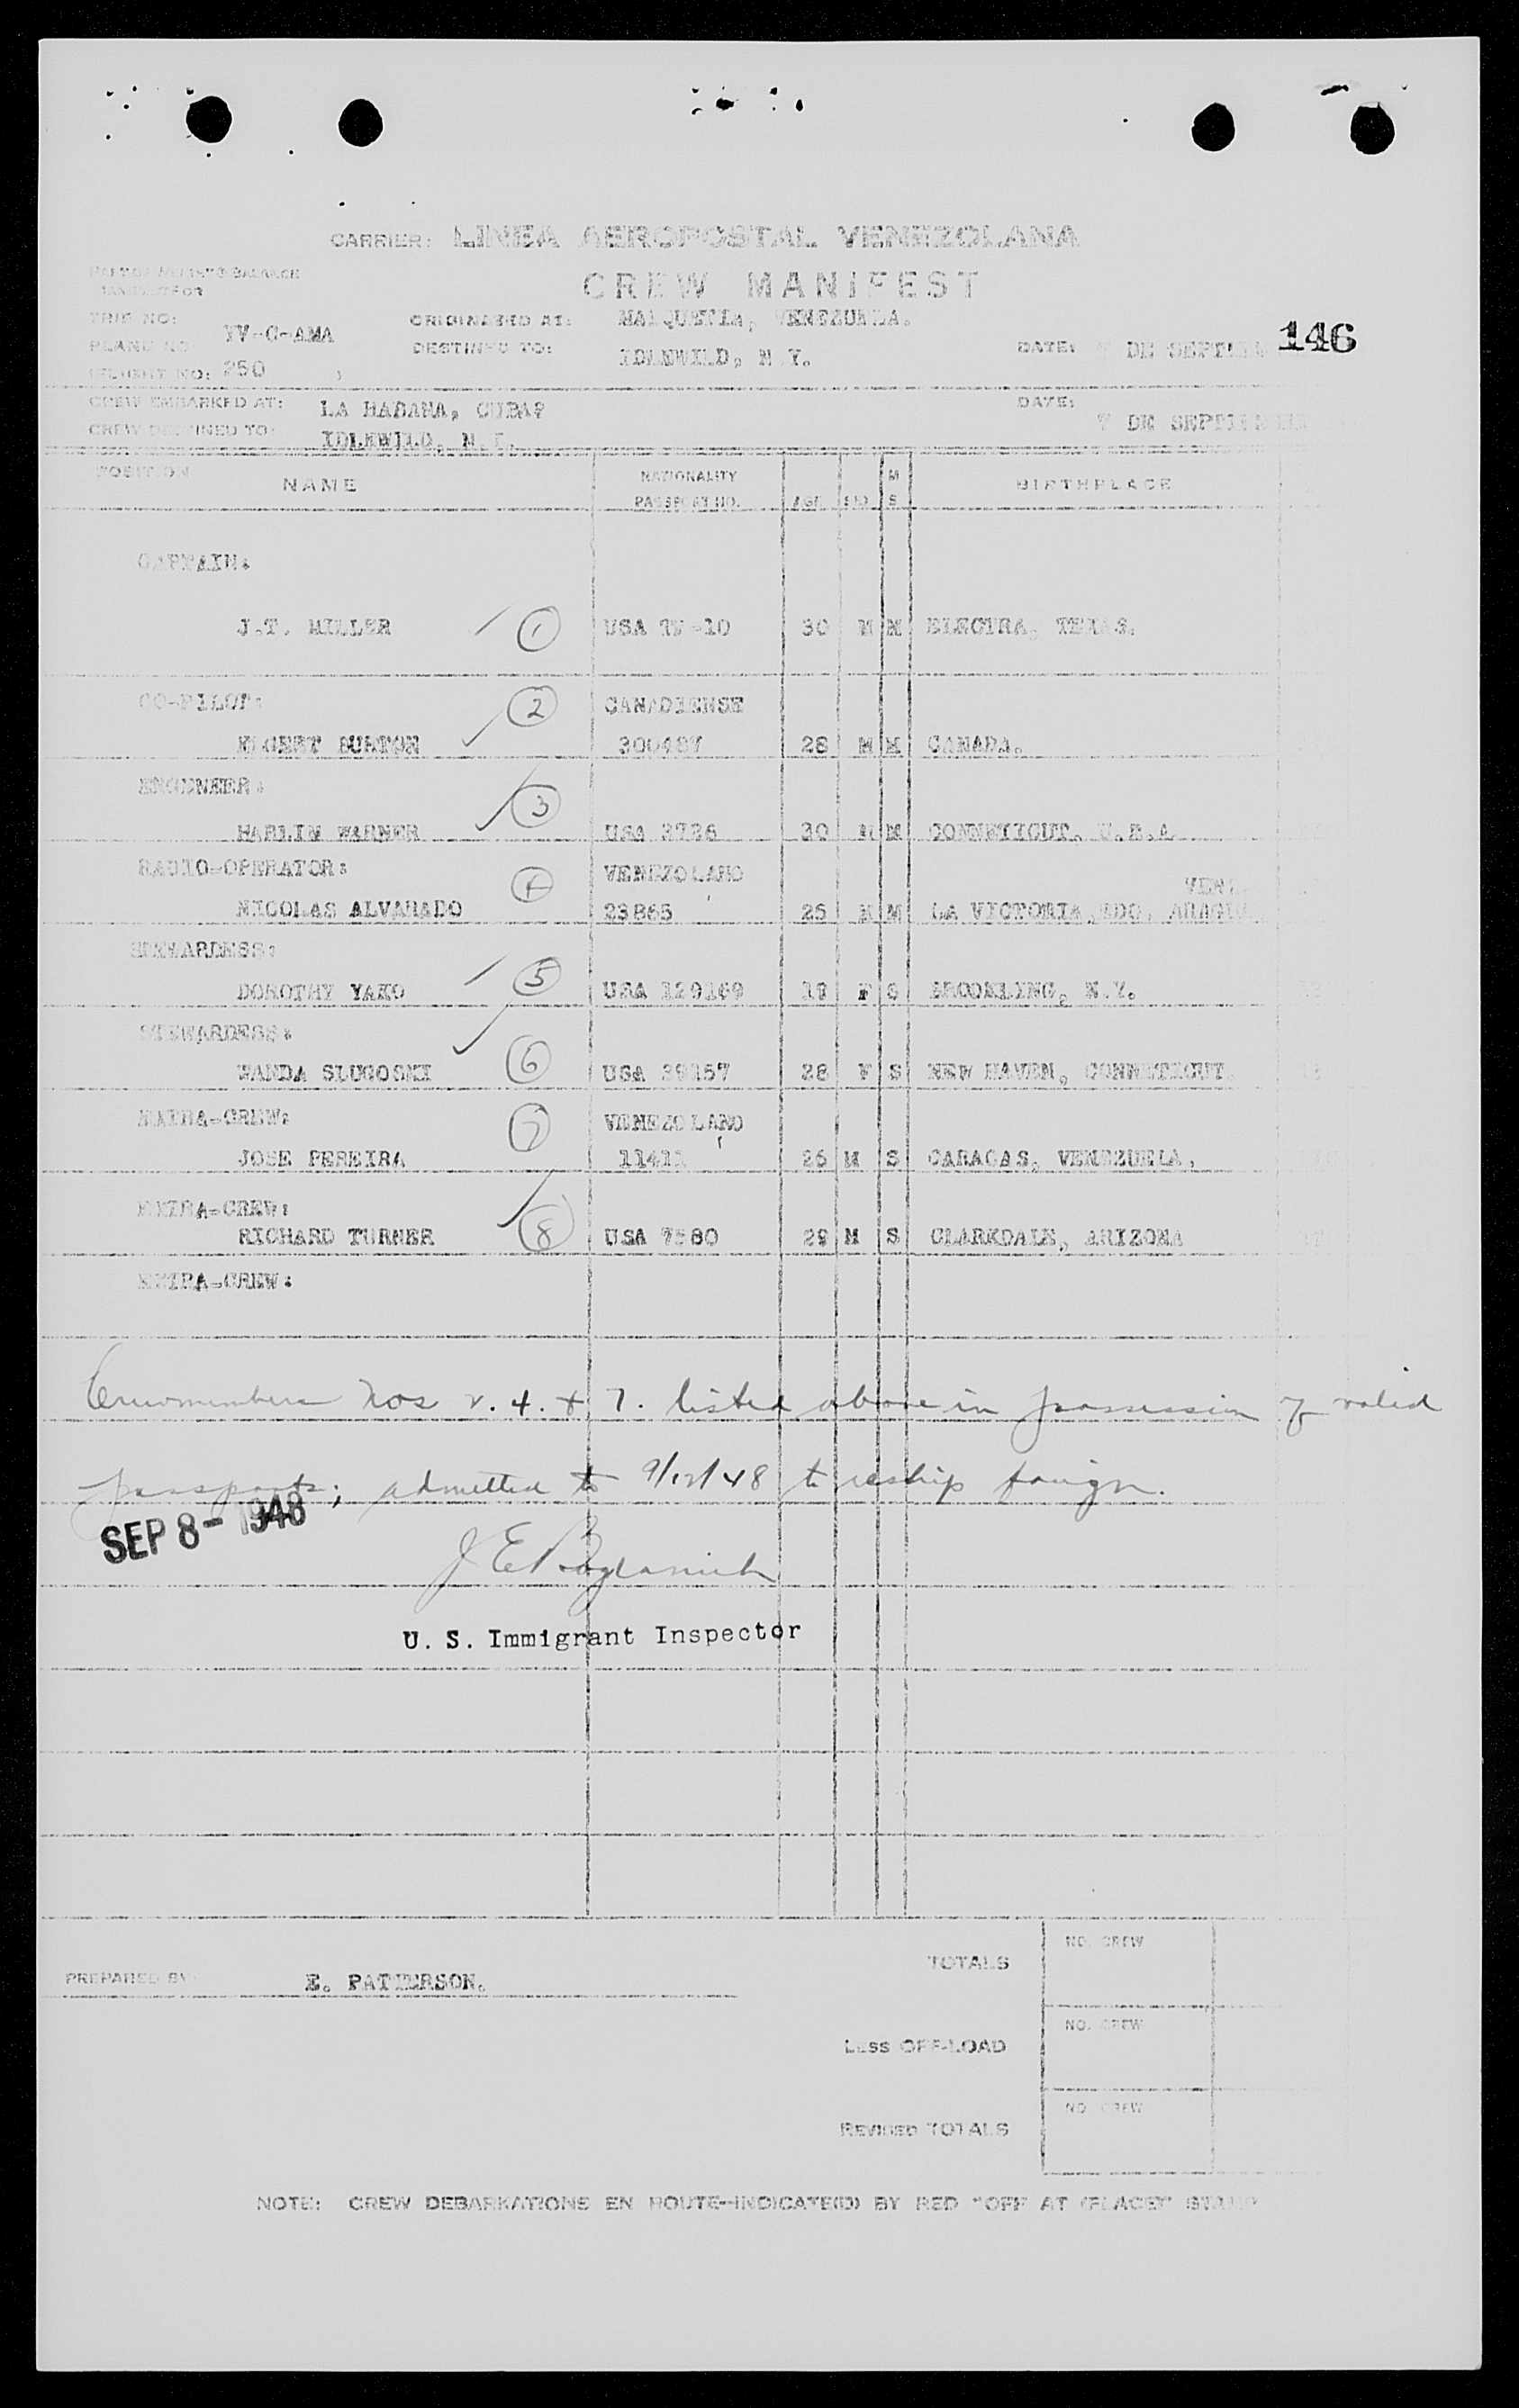 146
CARRIER: LINEA AEROPOSTAL VENEZOLANA
CREW MANIFEST
TRIP NO:
PLANE NO: YV-C-AMA
FLIGHT NO: 250
ORIGINATED AT: MAIQUETIA, VENEZUELA.
DESTINED TO: IDLEWILD, N.Y.
DATE: DE
CREW EMBARKED AT: LA HABANA, CUBA
CREW DESTINED TO: IDLEWILD, N.Y.
DATE: 7 DE
POSITION NAME NATIONALITY PASSPORT NO. AGE M S BIRTHPLACE
CAPTAIN:
J.T. MILLER 1 USA 30 M M ELECTRA, TEXAS.
CO-PILOT: 2 CANADIENSE
BURTON 28 M M CANADA.
ENGENNERR:
HARLIN WARNER 3 USA 3736 30 M M CONNETICUT, U.S.A
RADIO-OPERATOR: 4 VENEZOLANO
NICOLAS ALVARADO 23865 25 M M LA VICTORIA, EDO. ARAGUA
STEWARDESS:
DOROTHY YAKO 5 USA 129169 F S N.Y.
STEWARDESS:
WANDA 6 USA 28 F S NEW HAVEN,
EXTRA-CREW: 7 VENEZOLANO
JOSE PEREIRA 11411 M S CARACAS, VENEZUELA.
EXTRA-CREW:
RICHARD TURNER 8 USA 7580 29 M S CLARKDALE, ARIZONA
EXTRA-CREW:
Crewmembers Nos 2. 4. & 7. listed above in possession of valid
passports; admitted to 9/12/48 to reship foreign.
SEP 8- 1948
U. S. Immigrant Inspector
PREPARED BY E. PATTERSON.
TOTALS NO. CREW
LESS OFF-LOAD NO. CREW
REVISED TOTALS NO. CREW
NOTE: CREW DEBARKATIONS EN ROUTE-INDICATE(D) BY RED "OFF AT (PLACE)" STAMP